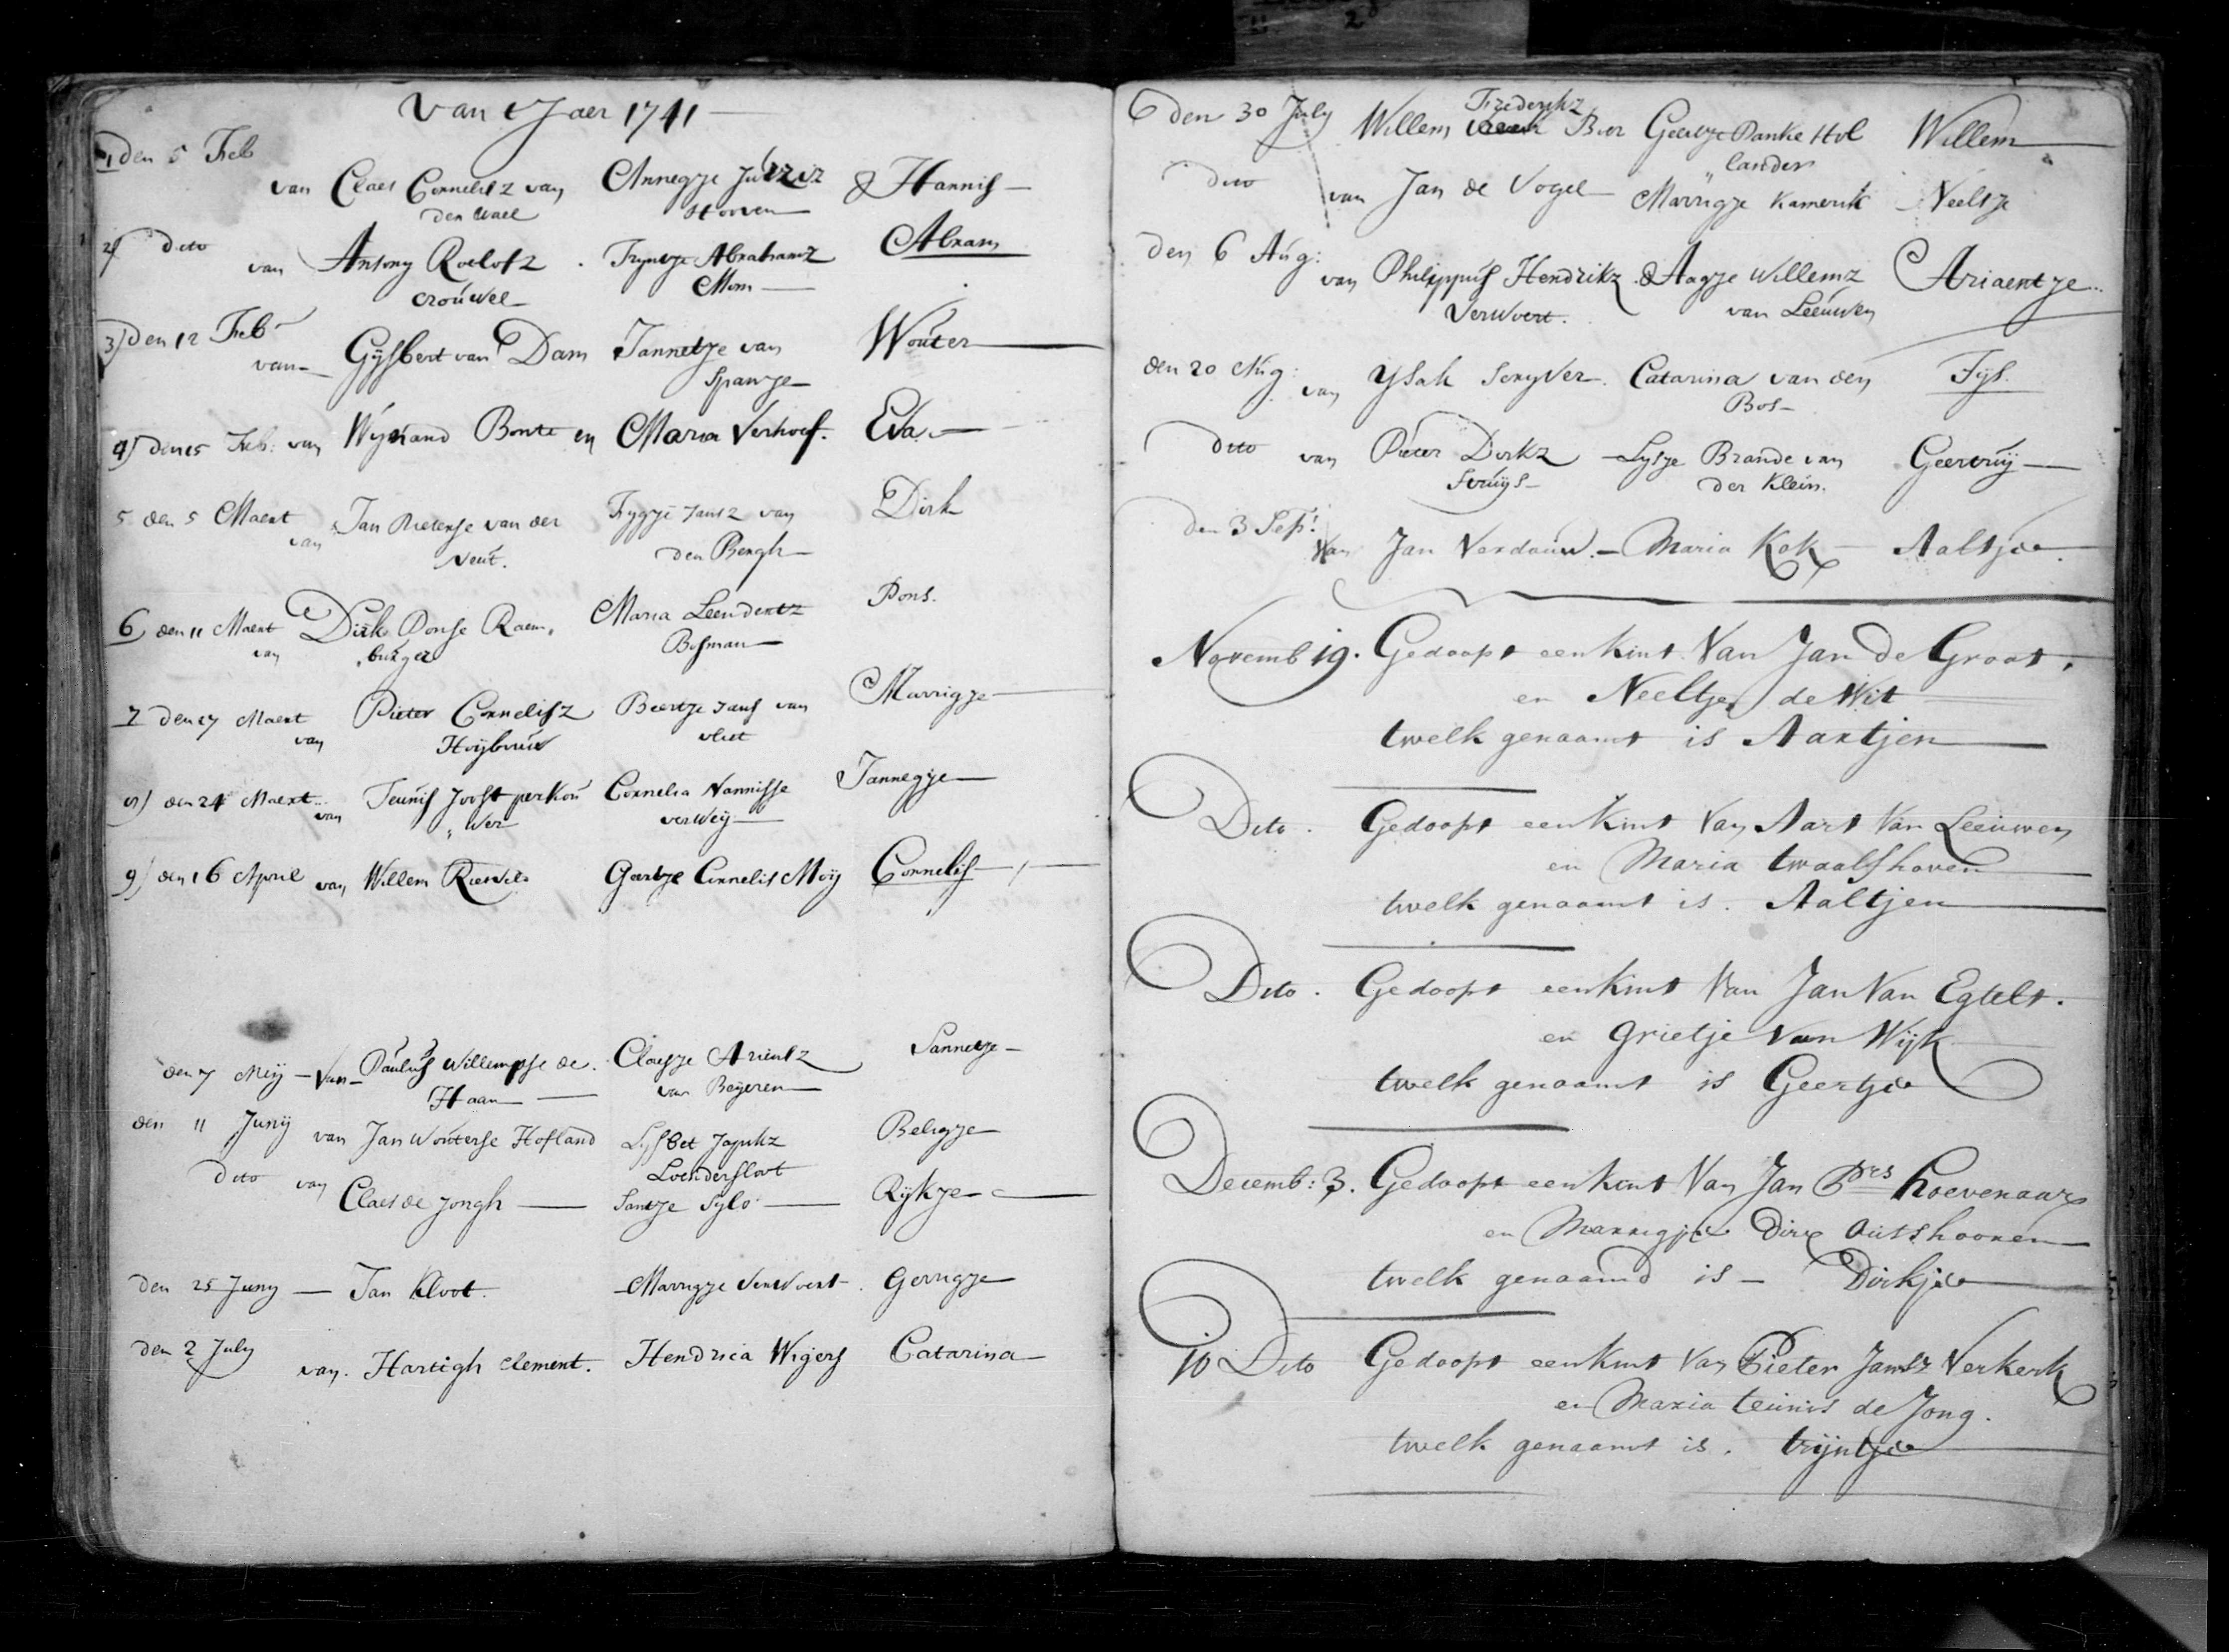 van t Jaer 1741
1 den 5 Feb
van Claes Cornelisz van Annegje & Hannis
den wael Hoorn
2) dito van Antony Roelofz Tryntje Abrahamz Abram
crouwel Mom
3) den 12 Feb van Gijsbert van Dam Jannetje van Wouter
Spanje
4) den 15 Feb: van Wijnand Bonte en Maria Verhoef. Eva
5 den 5 Maert van Jan Pieterse van der Fygje Jansz van Dirk
Neut. den Bergh
6) den 11 Maert van Dirk Ponse Raem„ Maria Leendertz Pons.
„burger Bosman
7 den 17 Maert van Pieter Cornelisz Beertje Jans van Marrigje
vliet
8) den 24 Maert van Teunis Joost perkou Cornelia Nannisse Jannegje
„wer verweij
9) den 16 April van Willem Geertje Cornelis Moij Cornelis
den 7 Meij van Paulus Willempse de Claesje Ariensz Sannetje
Haan van Beijeren
den 11 Junij van Jan Wouterse Hofland Lijsbet Beligje
Loendersloot
dito van Claes de Jongh Santje Sylo Rijkje
den 25 Juny Jan Kloot. Marrigje Verwoert Gerrigje
den 2 July van Hartigh Clement. Hendrica Wigers Catarina
Frederykz
den 30 July Willem Bor Geertje Panke Hol Willem
„lander
dito van Jan de Vogel Marrigje Kamerik Neeltje
den 6 Aug: van Philippus Hendrikz & Aagje Willemz Ariaentje
Verwoert. van Leeuwen
den 20 Aug: van Ysak Scryver. Catarina van den Fijs.
Bos
dito van Pieter Dirkz Lysje Brande van Geertruij
Struijs der Klein.
den 3 Sept: van Jan Verdouw. Maria Kok Aaltje
Novemb 19. Gedoopt een kint Van Jan De Groot,
en Neeltje de Wit
twelk genaamt is Aartjen
Dito. Gedoopt een kint Van Aart Van Leeuwen
en Maria twaalfhoven
twelk genaamt is. Aaltjen
Dito. Gedoopt een kint Van Jan Van Egtelt.
en Grietje Van Wijk
twelk genaamt is Geertje
Decemb: 3. Gedoopt een kint Van Jan Prs hoevenaar
en Marrigje Dirx Outshooren
twelk genaamd is Dirkje
10 Dito Gedoopt een kint Van Pieter Jansz Verkerk
en Maria teunis de Jong.
twelk genaamt is. trijntje